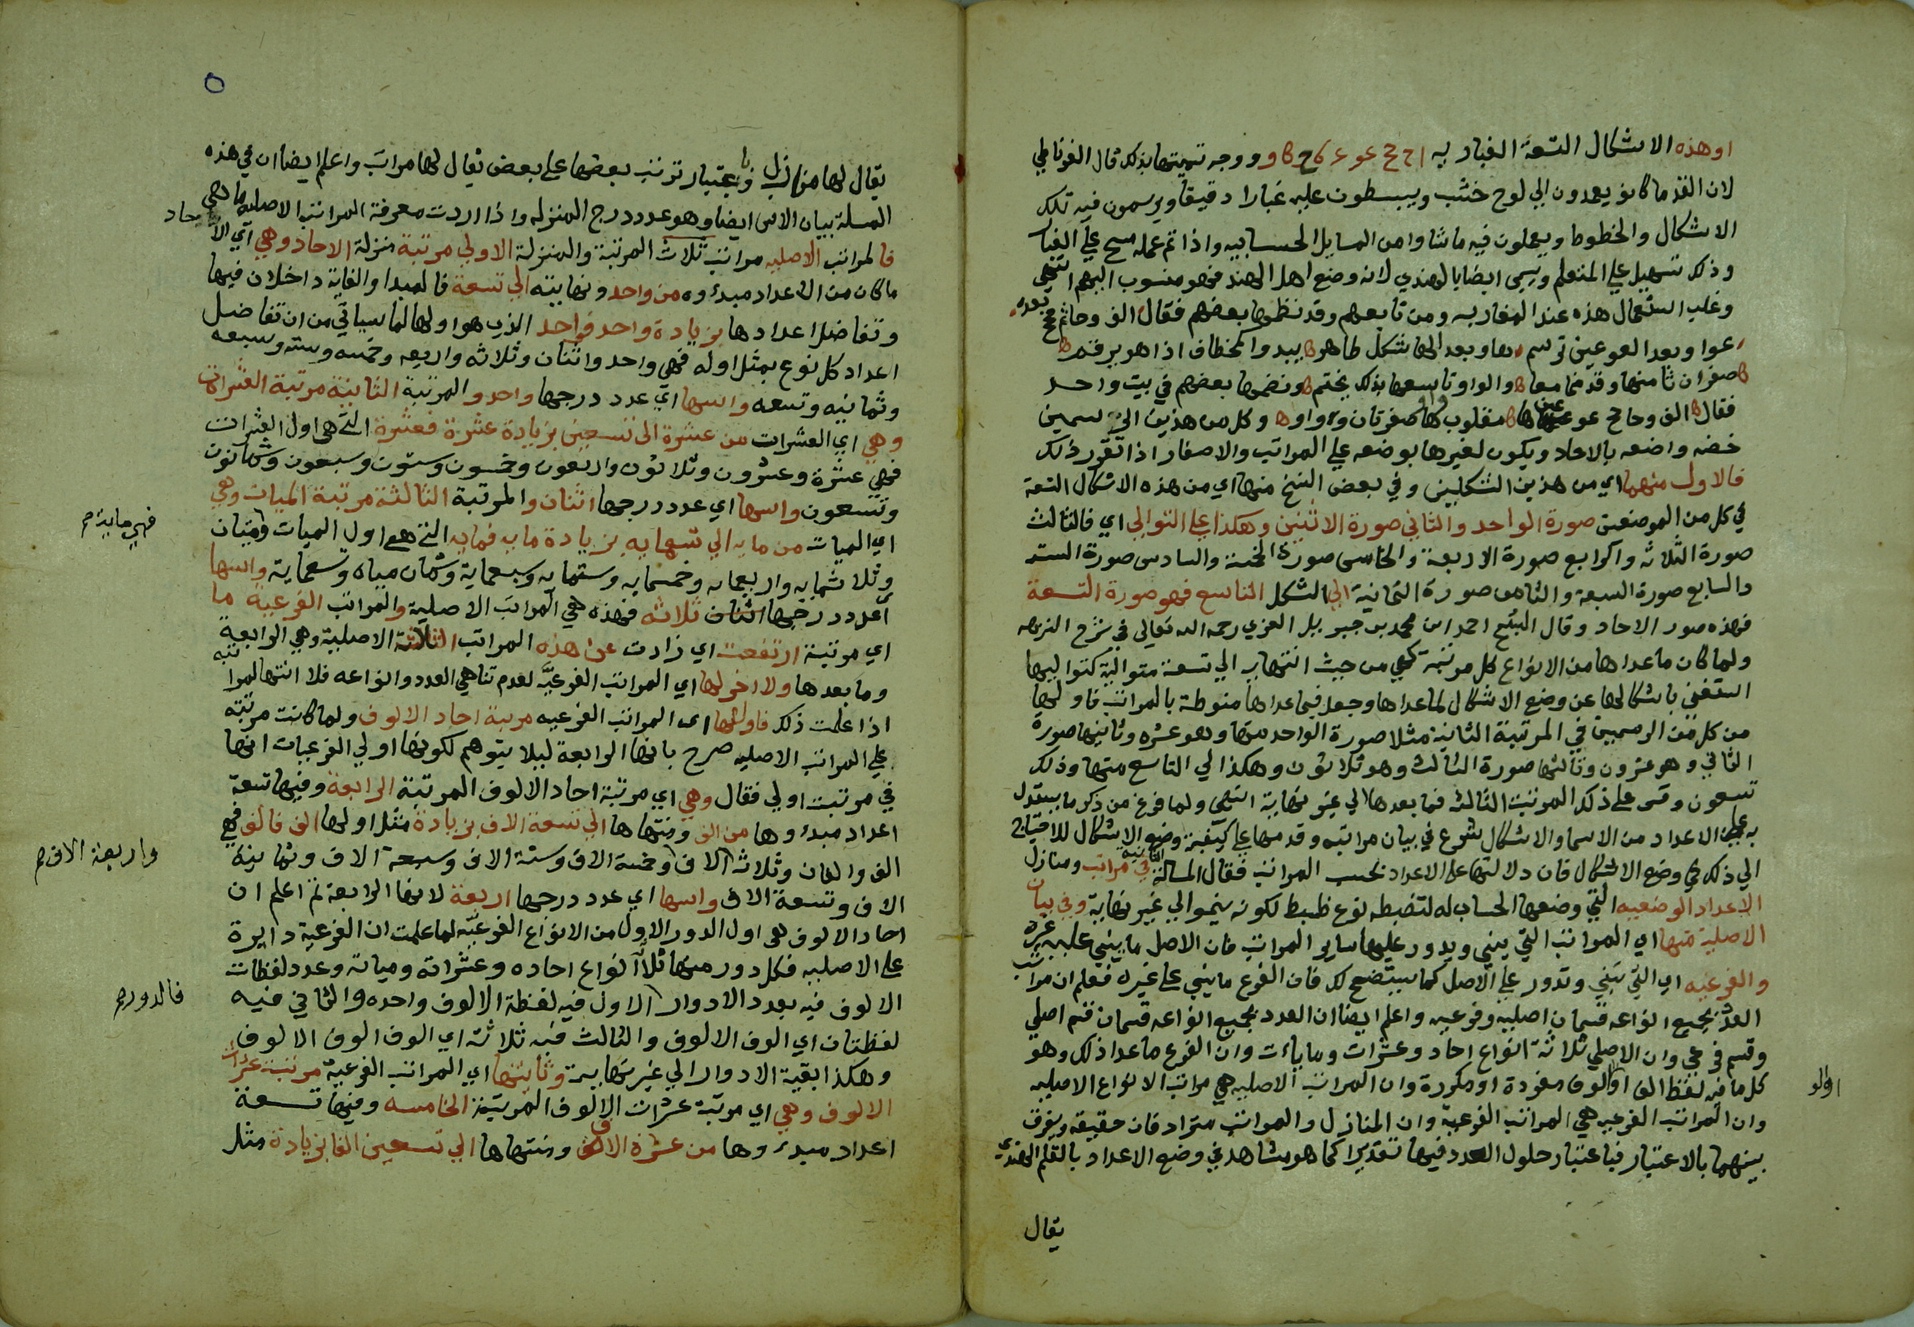 او هذه الاشكال التسعة الغباريه ووجه تسميتها بذلك قال الغرناطي
لان القدما كانو يعمدون الي لوح خشب ويبسطون عليه غبارا دقيقا ويرسمون فيه تلك
الاشكال والخطوط ويعملون فيه ماشاوا من المسايل الحسابيه واذا تم عمله مسح علي الغبار
وذلك تسهيل علي المتعلم ويسمى ايضا بالهندي لانه وضع اهل الهند فهو منسوب اليهم انتهي
وغلب استعمال هذه عند المغاربه ومن تابعهم وقد نظمها بعضهم فقال الف وحا ثم حج بعده
عوا وبعد العو عين ترسم ها وبعد الها شكل ظاهر يبدو كالمخطاف اذا هو يرقم
صفران ثامنها وقد ضما معا والواو تاسعها بذلك يختم ونضمها بعضهم في بيت واحد
فقال الف وحا حج عو مقلوب صفرتان وواو وكل من هذين الي سمين
خصه واضعه بالاحاد ويكون لغيرها بوضعه علي المراتب والاصفار اذا تقرر ذلك
فالاول منهما اي من هذين الشكلين وفي بعض النسخ منها اي من هذه الاشكال التسعة
في كل من الموضعين صورة الواحد والثاني صورة الاثنين وهكذا علي التوالي اي فالثالث
صورة الثلاثه والرابع صورة الاربعة والخامس صورة الخمسة والسادس صورة الستة
والسابع صورة السبعة والثامن صورة الثمانية الي الشكل التاسع فهو صورة التسعة
فهذه صور الاحاد وقال الشيخ احمد ابن محمد بن جبريل العزي رحمه الله تعالي في شرح النزهه
ولما كان ماعداها من الانواع كل مرتبة كهي من حيث انتهايه الي تسعة متوالية كتواليها
استغني باشكالها عن وضع الاشكال لماعداها وجعل فيما عداها منوطة بالمراتب فاولها
من كل من الرسمين في المرتبة الثانية مثلا صورة الواحد منها وهو عشره وثانيها صورة
الثاني وهو عشرون وثالثها صورة الثالث وهو ثلاثون وهكذا الي التاسع منها وذلك
تسعون وقس علي ذلك المرتبة الثالثة فما بعدها الي غير نهاية انتهي ولما فرغ من ذكر ما يستدل
به علي الاعداد من الاسما والاشكال شرع في بيان مراتبه وقدمها علي كيفية وضع الاشكال للاحتياج
الي ذلك في وضع الاشكال فان دلالتها علي الاعداد بحسب المراتب فقال المسالة الثانية في مراتب ومنازل
الاعداد الوضعيه التي وضعها الحساب له لتضبطه نوع ظبط لكونه ينموا الي غير نهاية وفي بيان
الاصلية منها اي المراتب التي يبني ويدور عليها ساير المراتب فان الاصل ما يبني عليه غيره
والفرعيه اي التي تبني وتدور علي الاصل كما سيتضح لك فان الفرع ما يبني علي غيره فعلم ان مراتب
العدد بجميع انواعه قسمان اصليه وفرعيه واعلم ايضا ان العدد بجميع انواعه قسمان قسم اصلي
وقسم فرعي وان الاصلي ثلاثة انواع احاد وعشرات ومايات وان الفرع ماعدا ذلك وهو
كل ما فيه لفظ الف او الوف مفردة او مكررة وان المراتب الاصليه هي مراتب الانواع الاصليه
وان المراتب الفرعيه هي المراتب الفرعية وان المنازل والمراتب مترادفان حقيقه ويفرق
بينهما بالاعتبار فباعتبار حلول العدد فيها تقديرا كما هو مشاهد في وضع الاعداد بالقلم الهندي
يقال
يقال لها منازل وباعتبار ترتب بعضها علي بعض يقال لها مراتب واعلم ايضا ان في هذه
المسلة بيان الاس ايضا وهو عدد درج المنزله واذا اردت معرفة المراتب الاصليه ما هي
فالمراتب الاصليه مراتب ثلاث المرتبة والمنزلة الاولي مرتبة منزلة الاحاد وهي اي الاحاد
ما كان من الاعداد مبدءوه من واحد ونهايته الي تسعة فالمبدا والغاية داخلان فيها
وتفاضل اعدادها بزيادة واحد فواحد الذي هو اولها لما سياتي من ان تفاضل
اعداد كل نوع بمثل اوله فهي واحد واثنان وثلاثه واربعه وخمسه وسته وسبعه
وثمانيه وتسعه واسها اي عدد درجها واحد والمرتبة الثانية مرتبة العشرات
وهي اي العشرات من عشرة الى تسعين بزيادة عشرة فعشرة التي هي اول العشرات
فهي عشرة وعشرون وثلاثون واربعون وخمسون وستون وسبعون وثمانون
وتسعون واسها اي عدد درجها اثنان والمرتبة الثالثة مرتبة الميات وهي
اي الميات من مايه الي تسعمايه بزيادة مايه فمايه التي هي اول الميات وميتان
فهي ماية صح
وثلاثمايه واربعمايه وخمسمايه وستمايه وسبعماية وثمان مياه وتسعماية واسها
اي عدد درجها اثنان ثلاثه فهذه هي المراتب الاصلية والمراتب الفرعية ما
اي مرتبة ارتفعت اي زادت عن هذه المراتب الثلاثة الاصلية وهي الرابعة
وما بعدها ولا اخر لها اي المراتب الفرعيه لعدم تناهي العدد وانواعه فلا انتها لمراتبه
اذا علمت ذلك فاولها اي المراتب الفرعيه مرتبة احاد الالوف ولما كانت مرتبه
علي المراتب الاصليه صرح بانها الرابعة ليلا يتوهم لكونها اولي الفرعيات انها
في مرتبت اولي فقال وهي اي مرتبة احاد الالوف المرتبة الرابعة وفيها تسعة
اعداد مبدءوها من الف ومنتهاها الي تسعة الاف بزيادة مثل اولها الف فالف فهي
الف والفان وثلاثة الاف وخمسة الاف وستة الاف وسبعة الاف وثمانية
واربعة الاف صح
الاف وتسعة الاف واسها اي عدد درجها اربعة لانها الرابعة ثم اعلم ان
احاد الالوف هي اول الدور الاول من الانواع الفرعيه لما علمت ان الفرعية دايرة
علي الاصليه فكل دور منها ثلاثة انواع احاده وعشراته ومياته وعدد لفظات
الالوف فيه بعدد الادوار الاول فيه لفظة الالوف واحده والثاني فيه
فالدور صح
لفظتان اي الوف الالوف والثالث فيه ثلاثة اي الوف الوف الالوف
وهكذا بقية الادوار الي غير نهاية وثانيتها اي المراتب الفرعية مرتبة عشرات
الالوف وهي اي مرتبة عشرات الالوف المرتبة الخامسه وفيها تسعة
اعداد مبدءوها من عشرة الاف ومنتهاها الي تسعين الفا بزيادة مثل